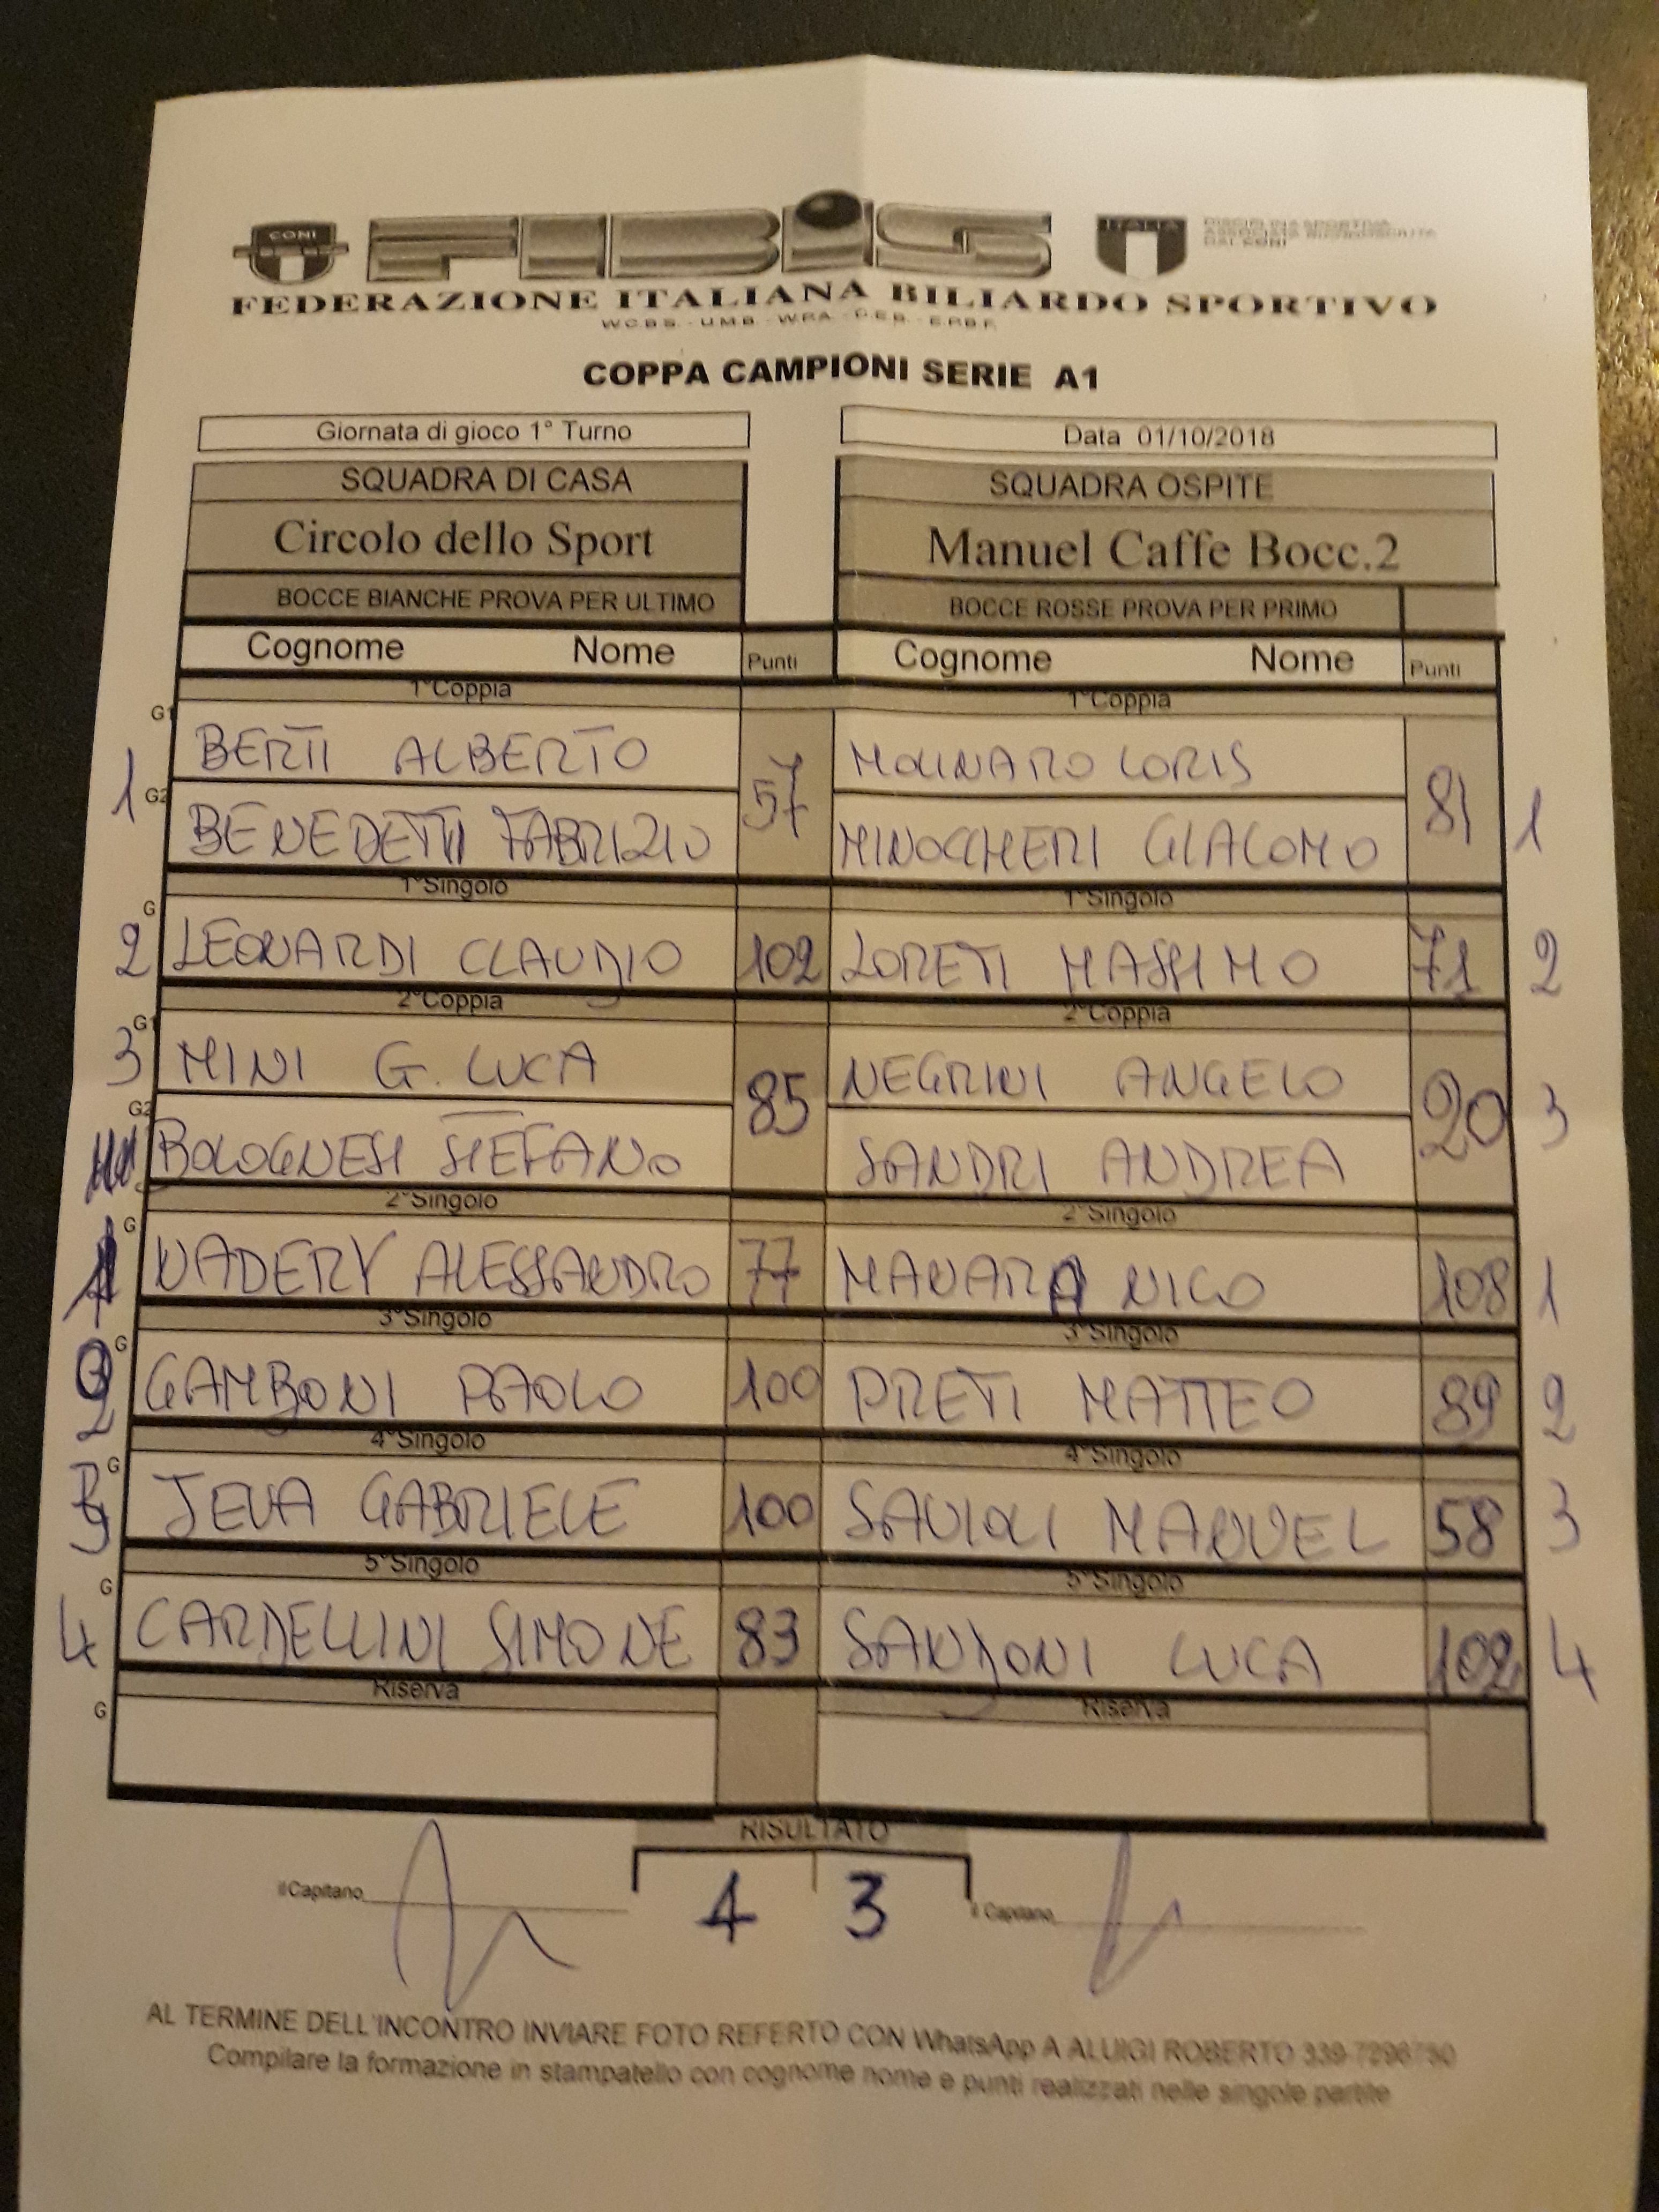 CONI FIBiS ITALIA DISCIPLINA SPORTIVA
ASSOCIATA RICONOSCIUTA
DAL CONI
FEDERAZIONE ITALIANA BILIARDO SPORTIVO
W.C.B.S. - U.M.B. - W.P.A. - C.E.B. - E.P.B.F.
COPPA CAMPIONI SERIE A1
Giornata di gioco 1° Turno Data 01/10/2018
SQUADRA DI CASA SQUADRA OSPITE
Circolo dello Sport Manuel Caffe Bocc.2
BOCCE BIANCHE PROVA PER ULTIMO BOCCE ROSSE PROVA PER PRIMO
Cognome Nome Punti Cognome Nome Punti
1°Coppia 1°Coppia
G1 BERTI ALBERTO MOLINARO LORIS
1 57 81 1
G2 BENEDETTI FABRIZIO MINOCCHERI GIACOMO
1°Singolo 1°Singolo
G
2 LEONARDI CLAUDIO 102 LORETI MASSIMO 71 2
2°Coppia 2°Coppia
G1
3 MINI G. LUCA NEGRINI ANGELO
85 20 3
G2 BOLOGNESI STEFANO SANDRI ANDREA
2°Singolo 2°Singolo
G
1 NADERY ALESSANDRO 77 MANARA NICO 108 1
3°Singolo 3°Singolo
G
2 GAMBONI PAOLO 100 PRETI MATTEO 89 2
4°Singolo 4°Singolo
G
3 JEVA GABRIELE 100 SAVIOLI MANUEL 58 3
5°Singolo 5°Singolo
G
4 CARDELLINI SIMONE 83 SANDONI LUCA 102 4
Riserva Riserva
G
RISULTATO
il Capitano 4 3 il Capitano
AL TERMINE DELL'INCONTRO INVIARE FOTO REFERTO CON WhatsApp A ALUIGI ROBERTO 339-7296750
Compilare la formazione in stampatello con cognome nome e punti realizzati nelle singole partite